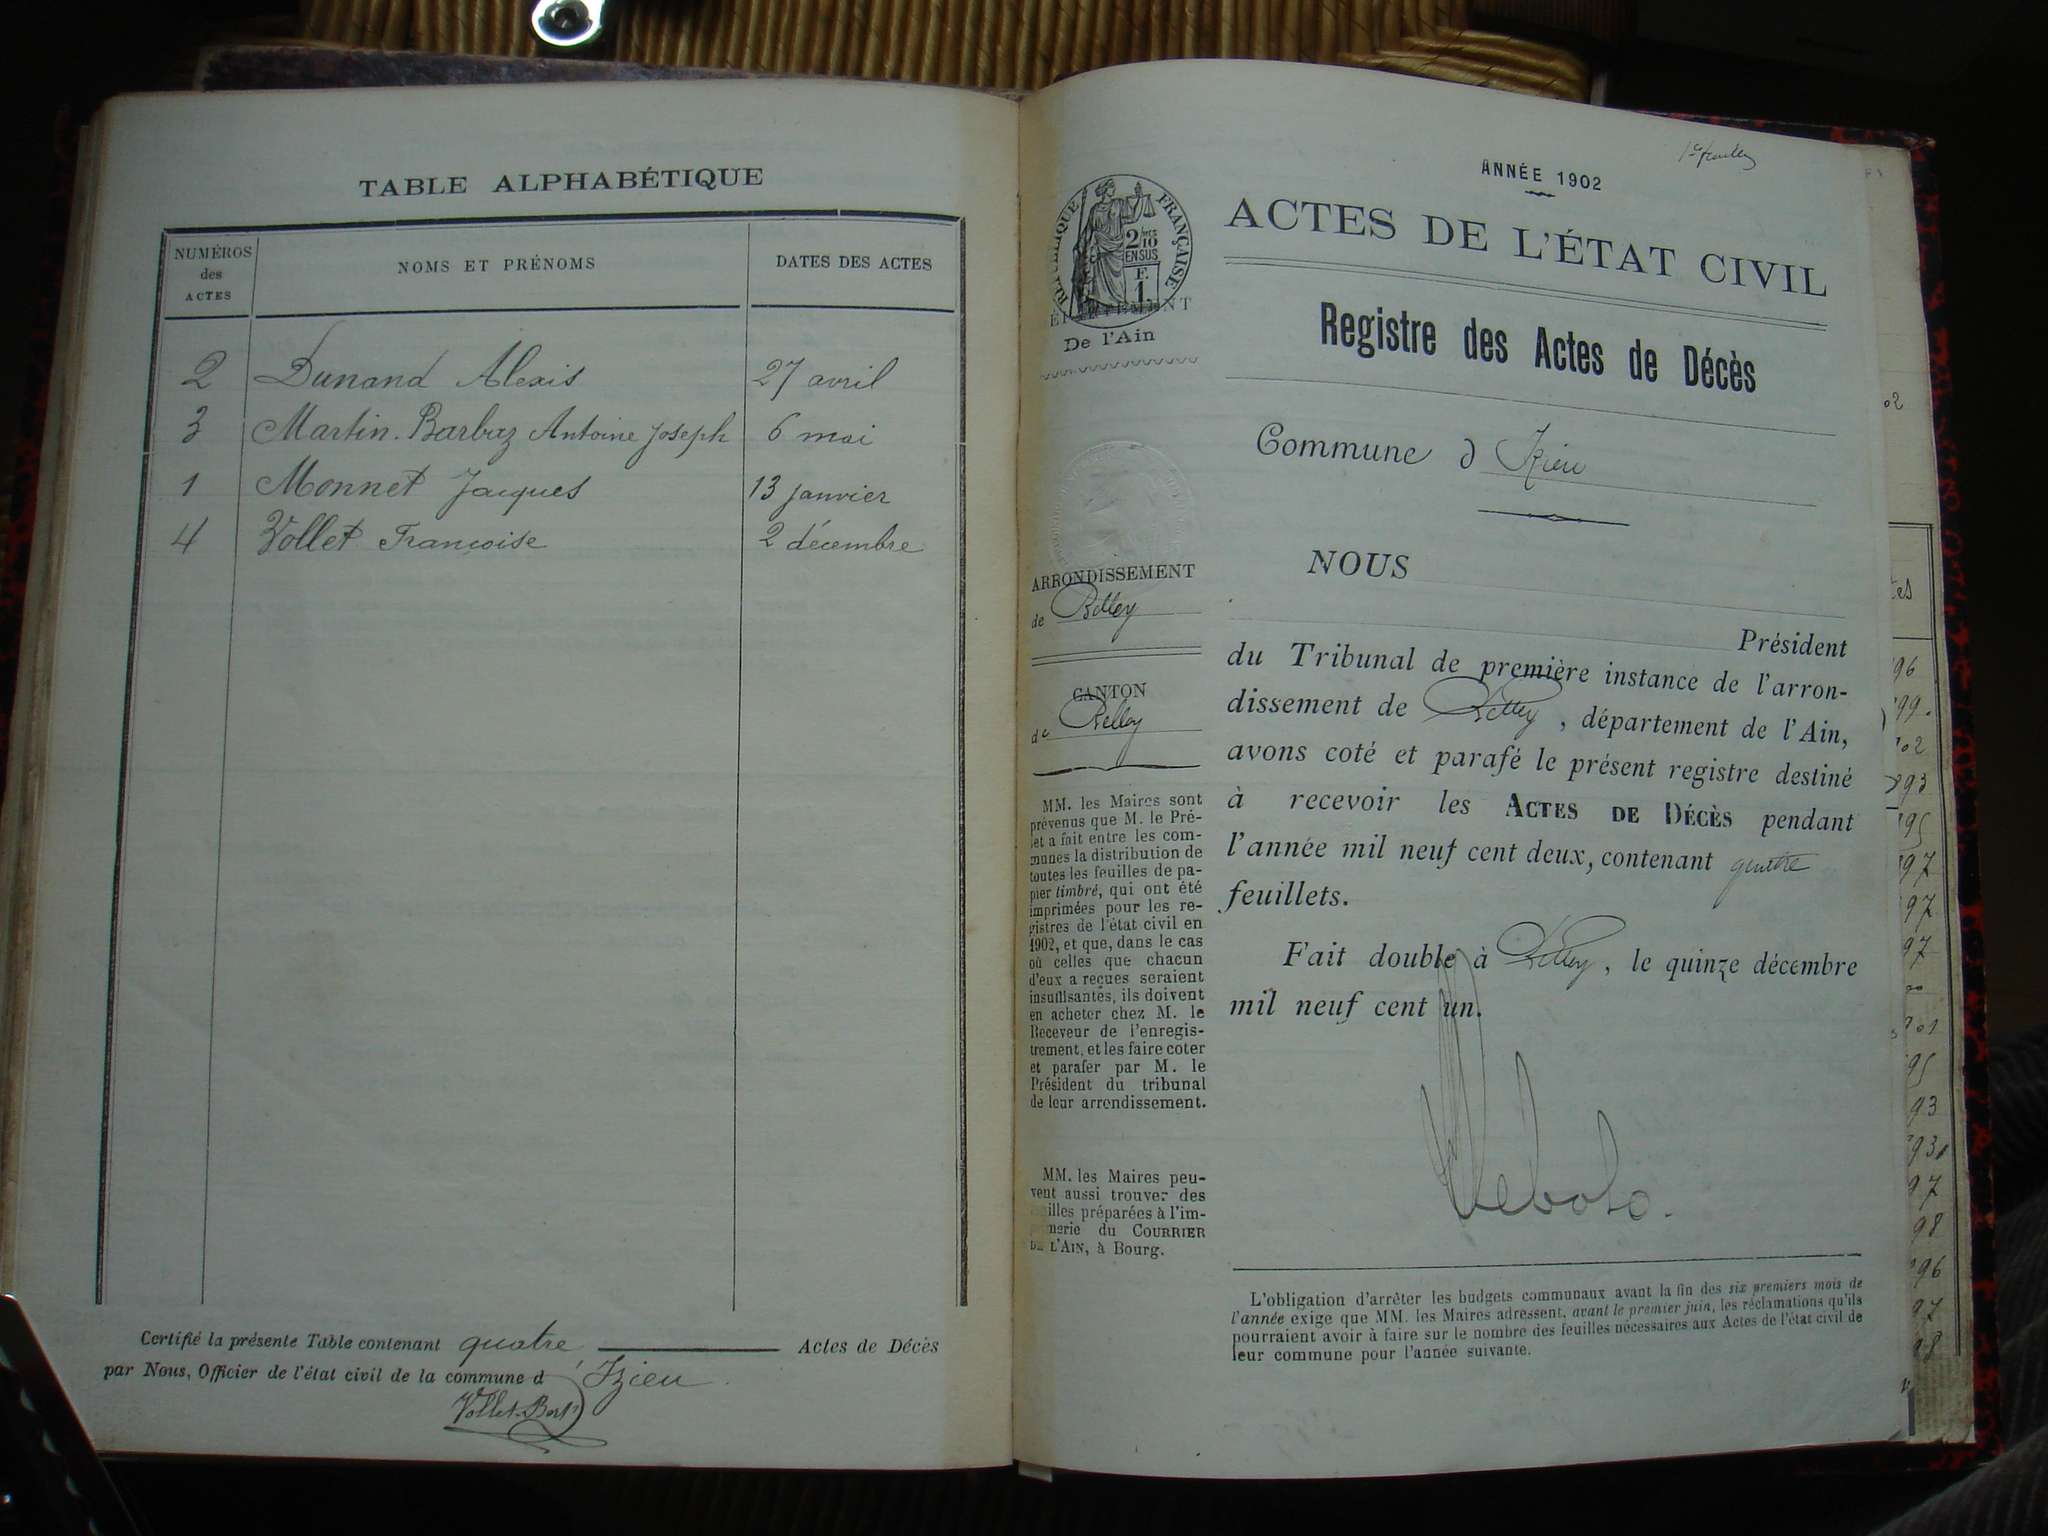 TABLE ALPHABÉTIQUE
NUMÉROS
des
ACTES
NOMS ET PRÉNOMS
DATES DES ACTES
2 Dunand Alexis 27 avril
3 Martin-Barbaz Antoine Joseph 6 mai
1 Monnet Jacques 13 janvier
4 Vollet Françoise 2 décembre
Certifié la présente Table contenant quatre Actes de Décès
par Nous, Officier de l'état civil de la commune d'Izieu.
Vollet-Bert
RÉPUBLIQUE FRANÇAISE
2/10
EN SUS
F.
1
DÉPARTEMENT
De l'Ain
ARRONDISSEMENT
de Belley
CANTON
de Belley
MM. les Maires sont
prévenus que M. le Pré-
fet a fait entre les com-
munes la distribution de
toutes les feuilles de pa-
pier timbré, qui ont été
imprimées pour les re-
gistres de l'état civil en
1902, et que, dans le cas
où celles que chacun
d'eux a reçues seraient
insuffisantes, ils doivent
en acheter chez M. le
Receveur de l'enregis-
trement, et les faire coter
et parafer par M. le
Président du tribunal
de leur arrondissement.
MM. les Maires peu-
vent aussi trouver des
feuilles préparées à l'im-
primerie du COURRIER
DE L'AIN, à Bourg.
ANNÉE 1902
ACTES DE L'ÉTAT CIVIL
Registre des Actes de Décès
Commune d Izieu
NOUS
Président
du Tribunal de première instance de l'arron-
dissement de Belley, département de l'Ain,
avons coté et parafé le présent registre destiné
à recevoir les ACTES DE DÉCÈS pendant
l'année mil neuf cent deux, contenant quatre
feuillets.
Fait double à Belley, le quinze décembre
mil neuf cent un.
L'obligation d'arrêter les budgets communaux avant la fin des six premiers mois de
l'année exige que MM. les Maires adressent, avant le premier juin, les réclamations qu'ils
pourraient avoir à faire sur le nombre des feuilles nécessaires aux Actes de l'état civil de
leur commune pour l'année suivante.